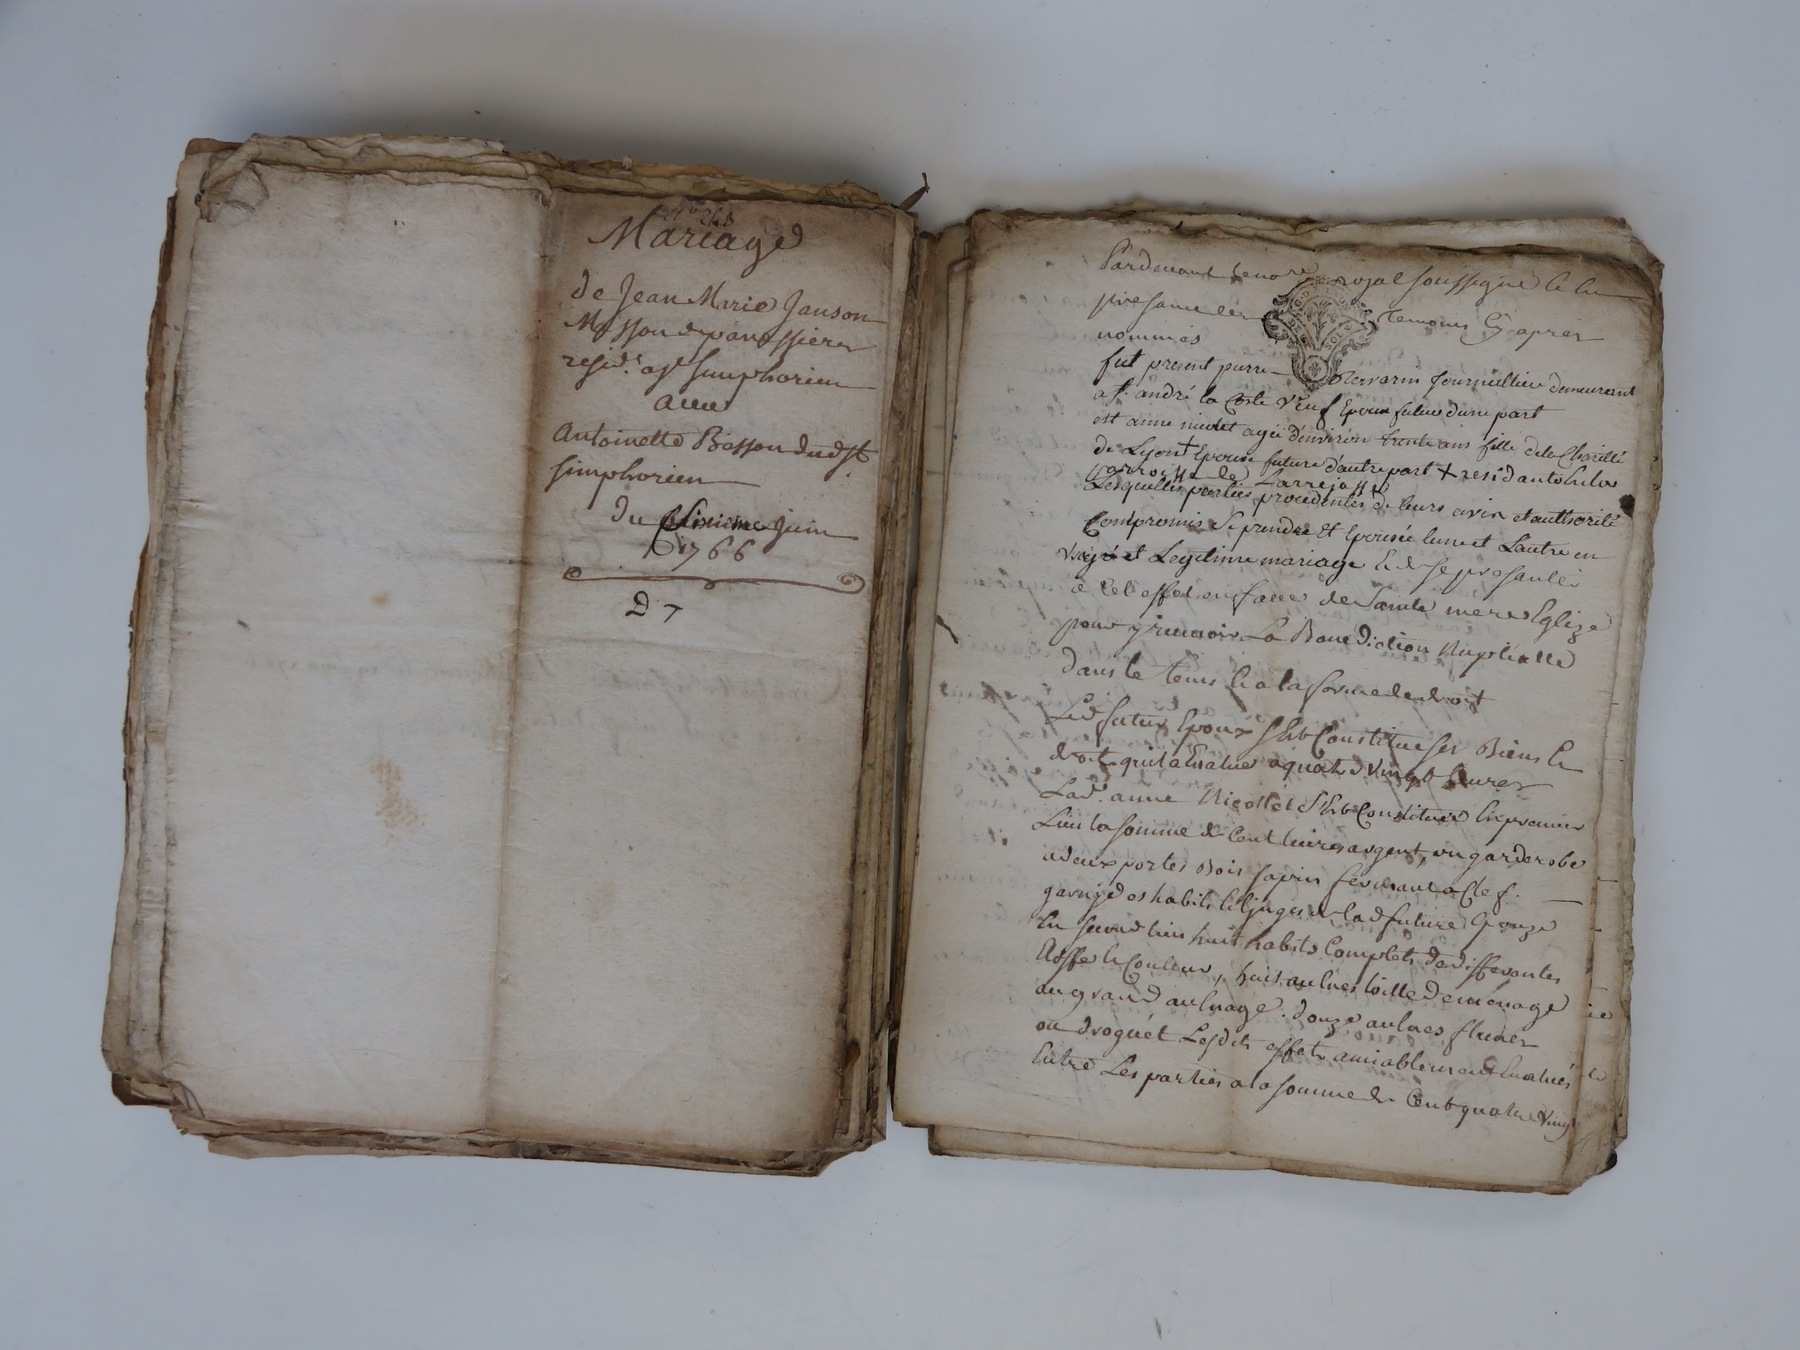 Mariage
de Jean Marie Janson
Masson de panissieres
resid.t a st simphorien
avec
Antoinette Besson dud. st
simphorien
du sixieme juin
1766
D 7
Pardevant le no.re royal soussigné et en
presance des temoins cy apres
nommés
fut present pierre fournillieu demeurant
a st. andré la Coste veuf Epoux futeur dune part
est anne nicolet agée d'environ trente ans fille de la Charitté
de Lyon + Epouse future d'autre part + residante au lieu
parroisse de Larrejasse
Lesquelles parties procedentes de leurs avis et authorité
Compromis se prendre Et Epousée lune et L'autre en
vraye et Legitime mariage Et de se presanter
a Cet effet en face de Sainte mere Eglize
pour y recevoir La Benediction Nuptialle
dans le tems et a la forme de droit
Led futeur Epoux s'est Constitué ses Biens et
droits quil a Evalué a quatre vingt livres
Lad. anne Nicollet s'est Constituée En premier
Lieu la somme de Cent livres argent, un garderobe
a deux portes Bois sapin fermant a Clef.
garnye des habits et linges de lad future Epouze
En second lieu huit habits Complets de differentes
Etoffe et Couleur, huit aulnes toille de menage
au grand aulnage. douze aulnes
ou droguet Lesdits effets amiablement Evalués
Entre Les parties a la somme de Cent quatre vingt